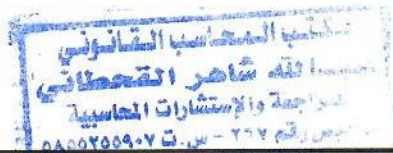 مكتب المحاسب القانوني
عبدالله شاهر القحطاني
للمراجعة والإستشارات المحاسبية
ترخيص رقم ٢٦٧ - س.ت ٥٨٥٥٢٥٥٩٠٧